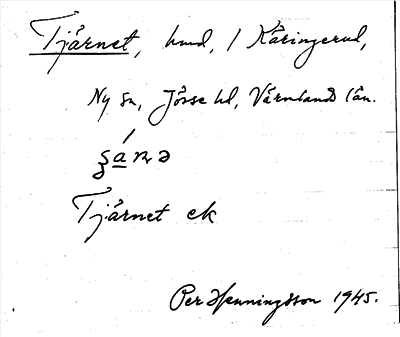 Tjärnet, hmd, / Käringerud,
Ny sn, Jösse hd, Värmlands län.
Tjärnet ek
Per Henningsson 1945.